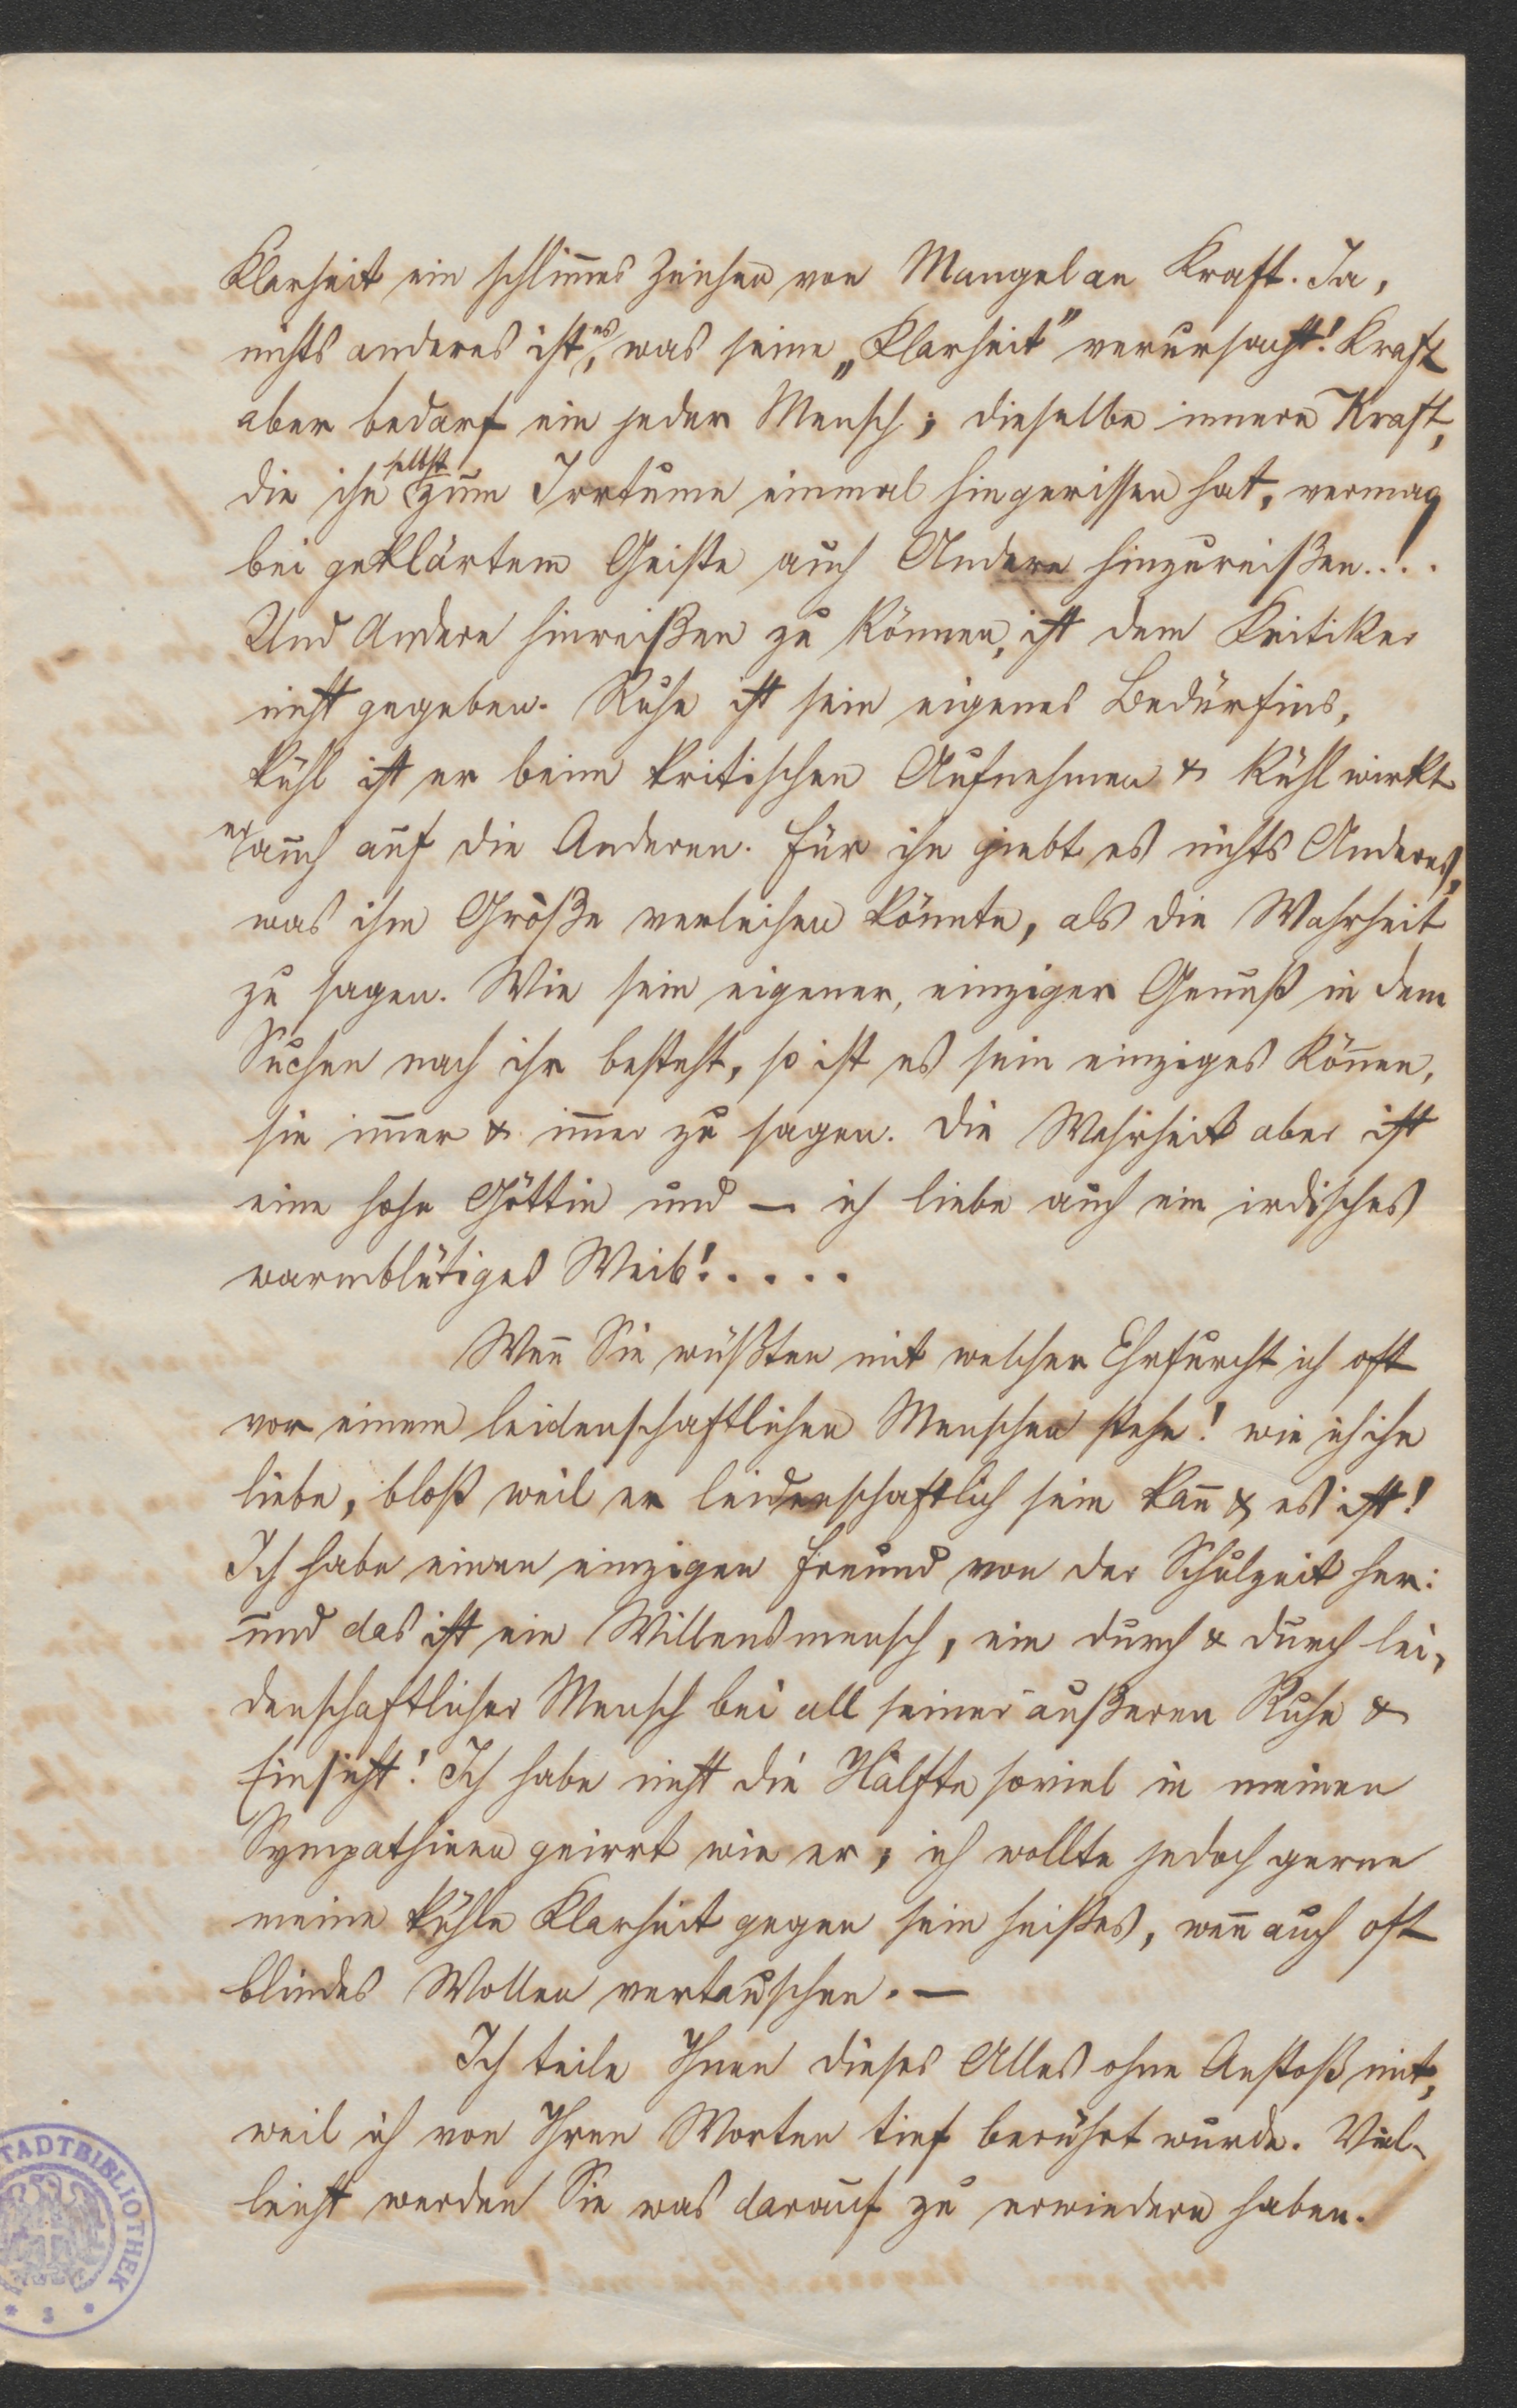 Klarheit ein schlim̄es Zeichen von Mangel an Kraft. Ja,
nichts anderes ist es, was seine „Klarheit" verursacht! Kraft
aber bedarf ein jeder Mensch; dieselbe innere Kraft,
die ihn selbst zum Irrtume einmal hingerissen hat, vermag
bei geklärtem Geiste auch Andere hinzureißen..!..
Und Andere hinreißen zu können, ist dem Kritiker
nicht gegeben. Ruhe ist sein eigenes Bedürfnis,
kühl ist er beim kritischen Aufnehmen & kühl wirkt
er auch auf die Anderen. Für ihn giebt es nichts Anderes,
was ihm Größe verleihen könnte, als die Wahrheit
zu sagen. Wie sein eigener, einziger Genuß in dem
Suchen nach ihr besteht, so ist es sein einziges Kön̄en,
sie im̄er & im̄er zu sagen. Die Wahrheit aber ist
eine hohe Göttin und — ich liebe auch ein irdisches
warmblütiges Weib!....
Wen̄ Sie wüßten mit welcher Ehrfurcht ich oft
vor einem leidenschaftlichen Menschen stehe! wie ich ihn
liebe, bloß weil er leidenschaftlich sein kan̄ & es ist!
Ich habe einen einzigen Freund von der Schulzeit her:
und das ist ein Willensmensch, ein durch & durch lei-
denschaftlicher Mensch bei all seiner äußeren Ruhe &
Einsicht! Ich habe nicht die Hälfte soviel in meinen
Sympathieen geirrt wie er; ich wollte jedoch gerne
meine kühle Klarheit gegen sein heißes, wen̄ auch oft
blindes Wollen vertauschen. —
Ich teile Ihnen dieses Alles ohne Anstoß mit,
weil ich von Ihren Worten tief berührt wurde. Viel-
leicht werden Sie was darauf zu erwiedern haben.
STADTBIBLIOTHEK